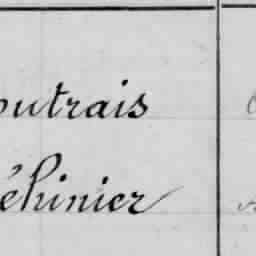 outrais
éhinier